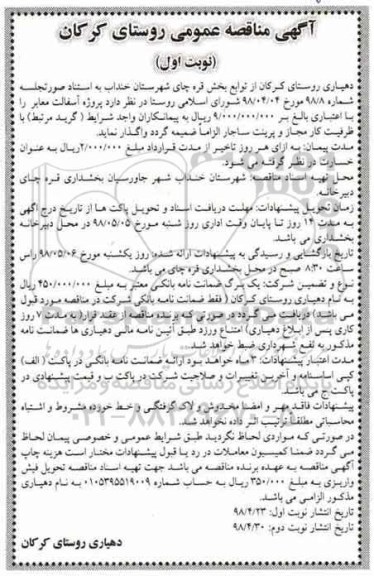 آگهی مناقصه عمومی روستای کرکان
(نوبت اول)
دهیاری روستای کرکان از توابع بخش قره چای شهرستان خنداب به استناد صورتجلسه
شماره ۹۸/۸ مورخ ۹۸/۰۴/۰۴ شورای اسلامی روستا در نظر دارد پروژه آسفالت معابر را
با اعتباری بالغ بر ۹/۰۰۰/۰۰۰/۰۰۰ ریال به پیمانکاران واجد شرایط ( گرید مرتبط) با
ظرفیت کار مجاز و پرینت ساجار الزاماً ضمیمه گردد واگذار نماید.
مدت پیمان: به ازای هر روز تاخیر از مدت قرارداد مبلغ ۲/۰۰۰/۰۰۰ریال به عنوان
خسارت در نظر گرفته می شود.
محل تهیه اسناد مناقصه: شهرستان خنداب شهر جاورسیان بخشداری قره چای
دبیرخانه
زمان تحویل پیشنهادات: مهلت دریافت اسناد و تحویل پاکت ها از تاریخ درج آگهی
به مدت ۱۴ روز تا پایان وقت اداری روز شنبه مورخ ۹۸/۰۵/۰۵ در محل دبیرخانه
بخشداری می باشد.
تاریخ بازگشایی و رسیدگی به پیشنهادات ارائه شده: روز یکشنبه مورخ ۹۸/۰۵/۰۶ راس
ساعت ۸:۳۰ صبح در محل بخشداری قره چای می باشد.
نوع و تضمین شرکت: یک برگ ضمانت نامه بانکی معتبر به مبلغ ۴۵۰/۰۰۰/۰۰۰ ریال
به نام دهیاری روستای کرکان ( فقط ضمانت نامه بانکی شرکت در مناقصه مورد قبول
می باشد) دریافت می گردد در صورتی که برنده مناقصه از عقد قرارداد به مدت ۷ روز
کاری پس از ابلاغ دهیاری) امتناع ورزد طبق آئین نامه مالی دهیاری ها ضمانت نامه
مذکور به نفع شهرداری ضبط خواهد شد.
مدت اعتبار پیشنهادات: ۳ ماه خواهد بود ارائه ضمانت نامه بانکی در پاکت (الف)
کپی اساسنامه و آخرین تغییرات و صلاحیت شرکت در پاکت ب و قیمت پیشنهادی در
پاکت ج می باشد.
پیشنهادات فاقد مهر و امضا مخدوش و لاک گرفتگی و خط خورده مشروط و اشتباه
محاسباتی مطلقا ترتیب اثر داده نخواهد شد.
در صورتی که مواردی لحاظ نگردید طبق شرایط عمومی و خصوصی پیمان لحاظ
می گردد ضمنا کمیسیون معاملات در رد یا قبول پیشنهادات مختار است هزینه چاپ
آگهی مناقصه به عهده برنده مناقصه می باشد جهت تهیه اسناد مناقصه تحویل فیش
واریزی به مبلغ ۳۵۰/۰۰۰ ریال به حساب شماره ۰۱۰۵۳۹۵۵۱۹۰۰۹ به نام دهیاری
مذکور الزامی می باشد.
تاریخ انتشار نوبت اول: ۹۸/۴/۲۳
تاریخ انتشار نوبت دوم: ۹۸/۴/۳۰
دهیاری روستای کرکان